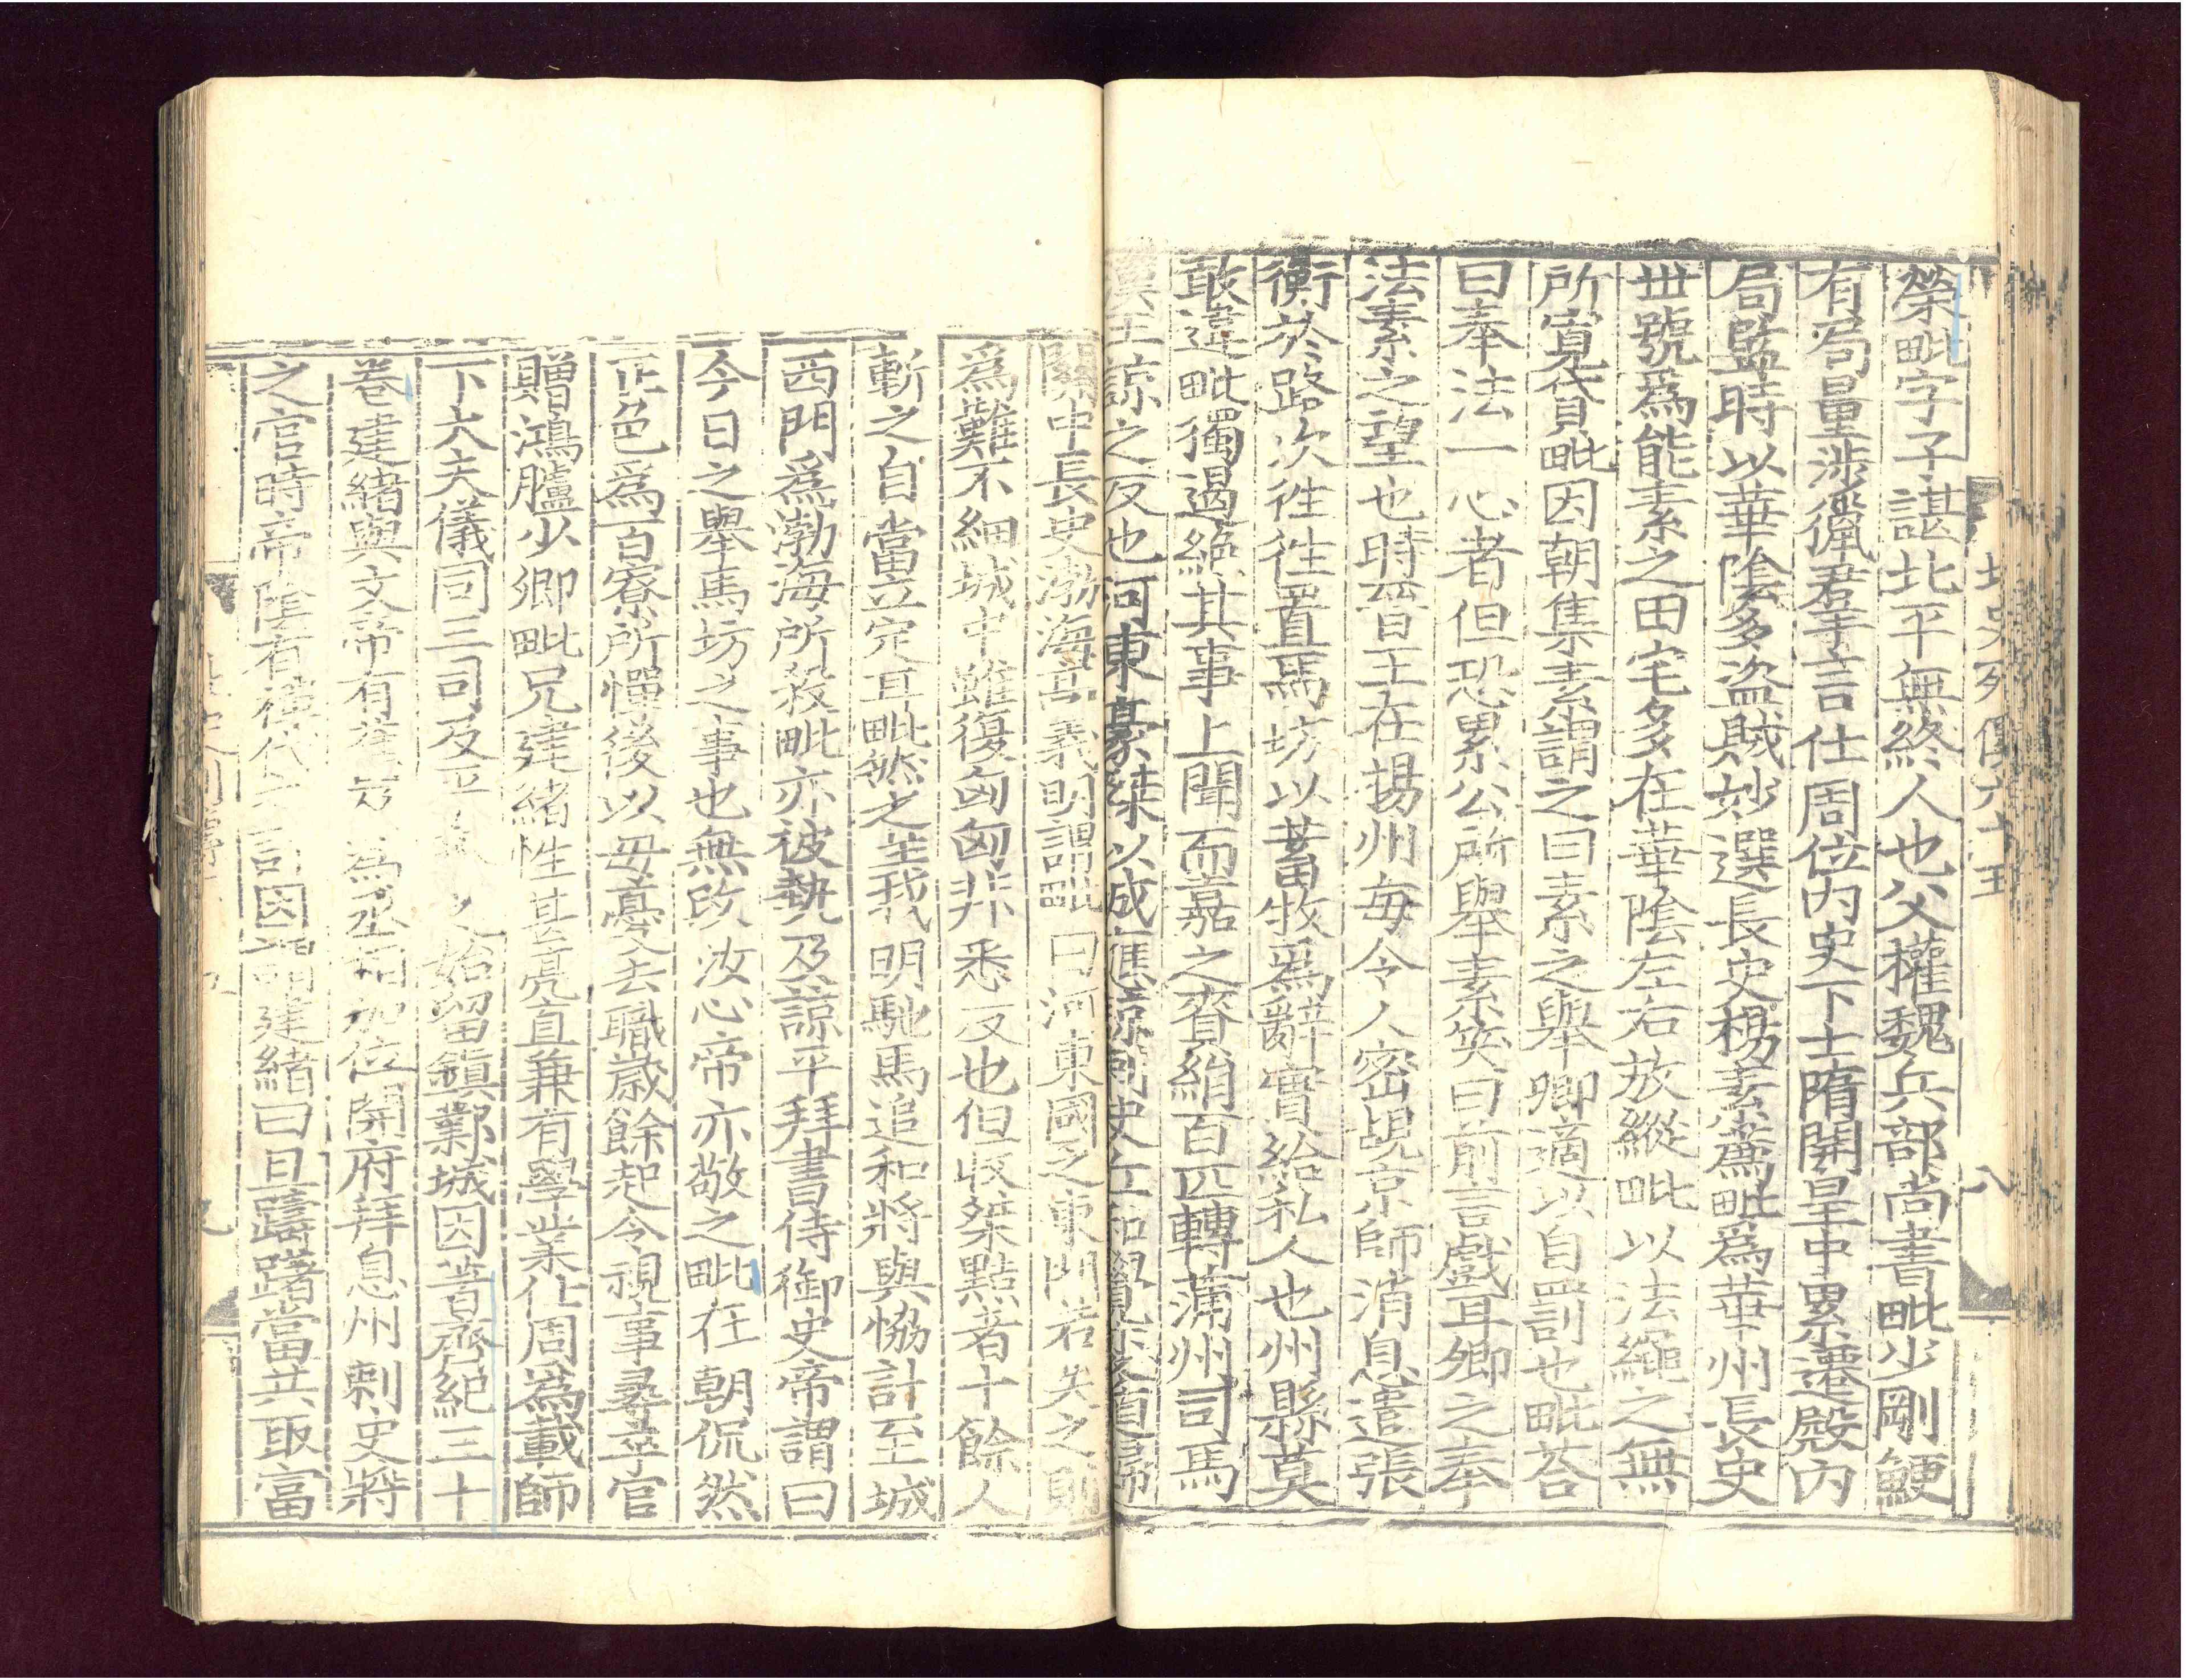 北史列傳六十五
八
榮毗字子諶北平無終人也父權魏兵部尚書毗少剛鯁
有局量涉獵羣言仕周位內史下士隋開皇中累遷殿內
局監時以華陰多盜賊妙選長史楊素薦毗爲華州長史
丗號爲能素之田宅多在華陰左右放縱毗以法繩之無
所寬貸毗因朝集素謂之曰素之舉卿適以自罰也毗荅
曰奉法一心者但恐累公所舉素笑曰前言戲耳卿之奉
法素之望也時晉王在揚州每令人密覘京師消息遣張
衡於路次徃徃置馬坊以畜牧爲辭實給私人也州縣莫
敢違毗獨遏絕其事上聞而嘉之賚絹百匹轉蒲州司馬
漢王諒之反也河東豪傑以城應諒刺史丘和覺變遁歸
關中長史渤海高義明謂毗曰河東國之東門若失之則
爲難不細城中雖復匈匈非悉反也但收桀黠者十餘人
斬之自當立定耳毗然之義明馳馬追和將與恊計至城
西門爲渤海所殺毗亦被執及諒平拜書侍御史帝謂曰
今日之舉馬坊之事也無改汝心帝亦敬之毗在朝侃然
正色爲百寮所憚後以母憂去職歲餘起令視事尋卒官
贈鴻臚少卿毗兄建緒性甚亮直兼有學業仕周爲載師
下大夫儀同三司及平 之始留鎭鄴城因著齊紀三十
卷建緒與文帝有舊 爲丞相加位開府拜息州刺史將
之官時帝陰有禪代 因謂建緒曰且躊躇當共取富